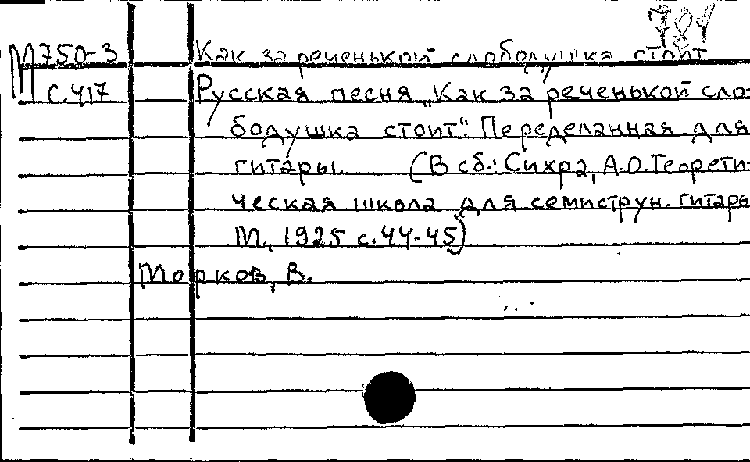 784
М750-3 Как за реченькой слободушка стоит
с.417 Русская песня „Как за реченькой сло-
бодушка стоит". Переделанная для
гитары. (В сб.: Сихра, А.О. Теорети-
ческая школа для семиструн. гитары
М., 1925 с.44-45)
Морков, В.